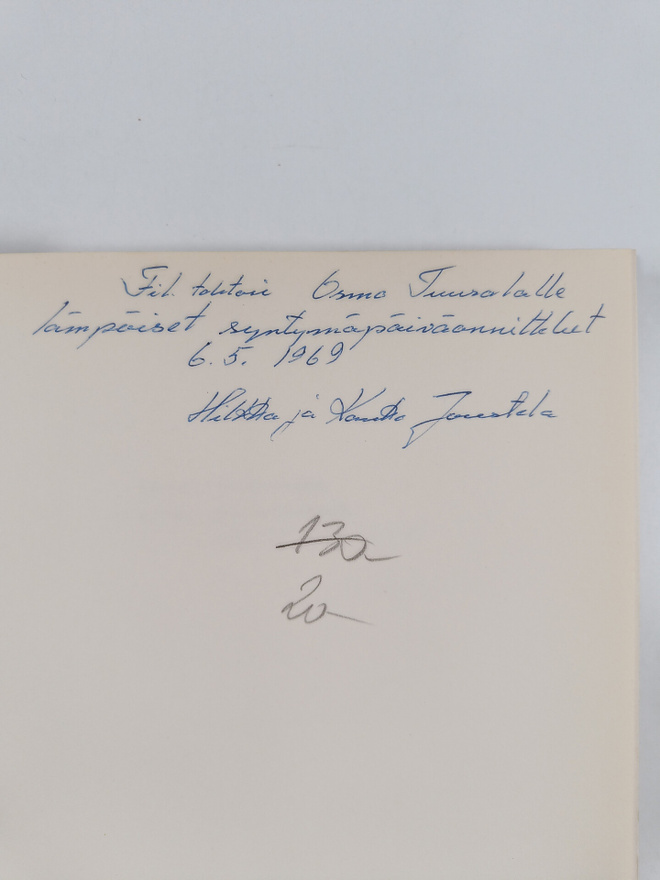 Fil. tohtori Osmo Tuusalalle
lämpöiset syntymäpäiväonnittelut
6. 5. 1969
Hilkka ja Kaukko Joustela
130
20